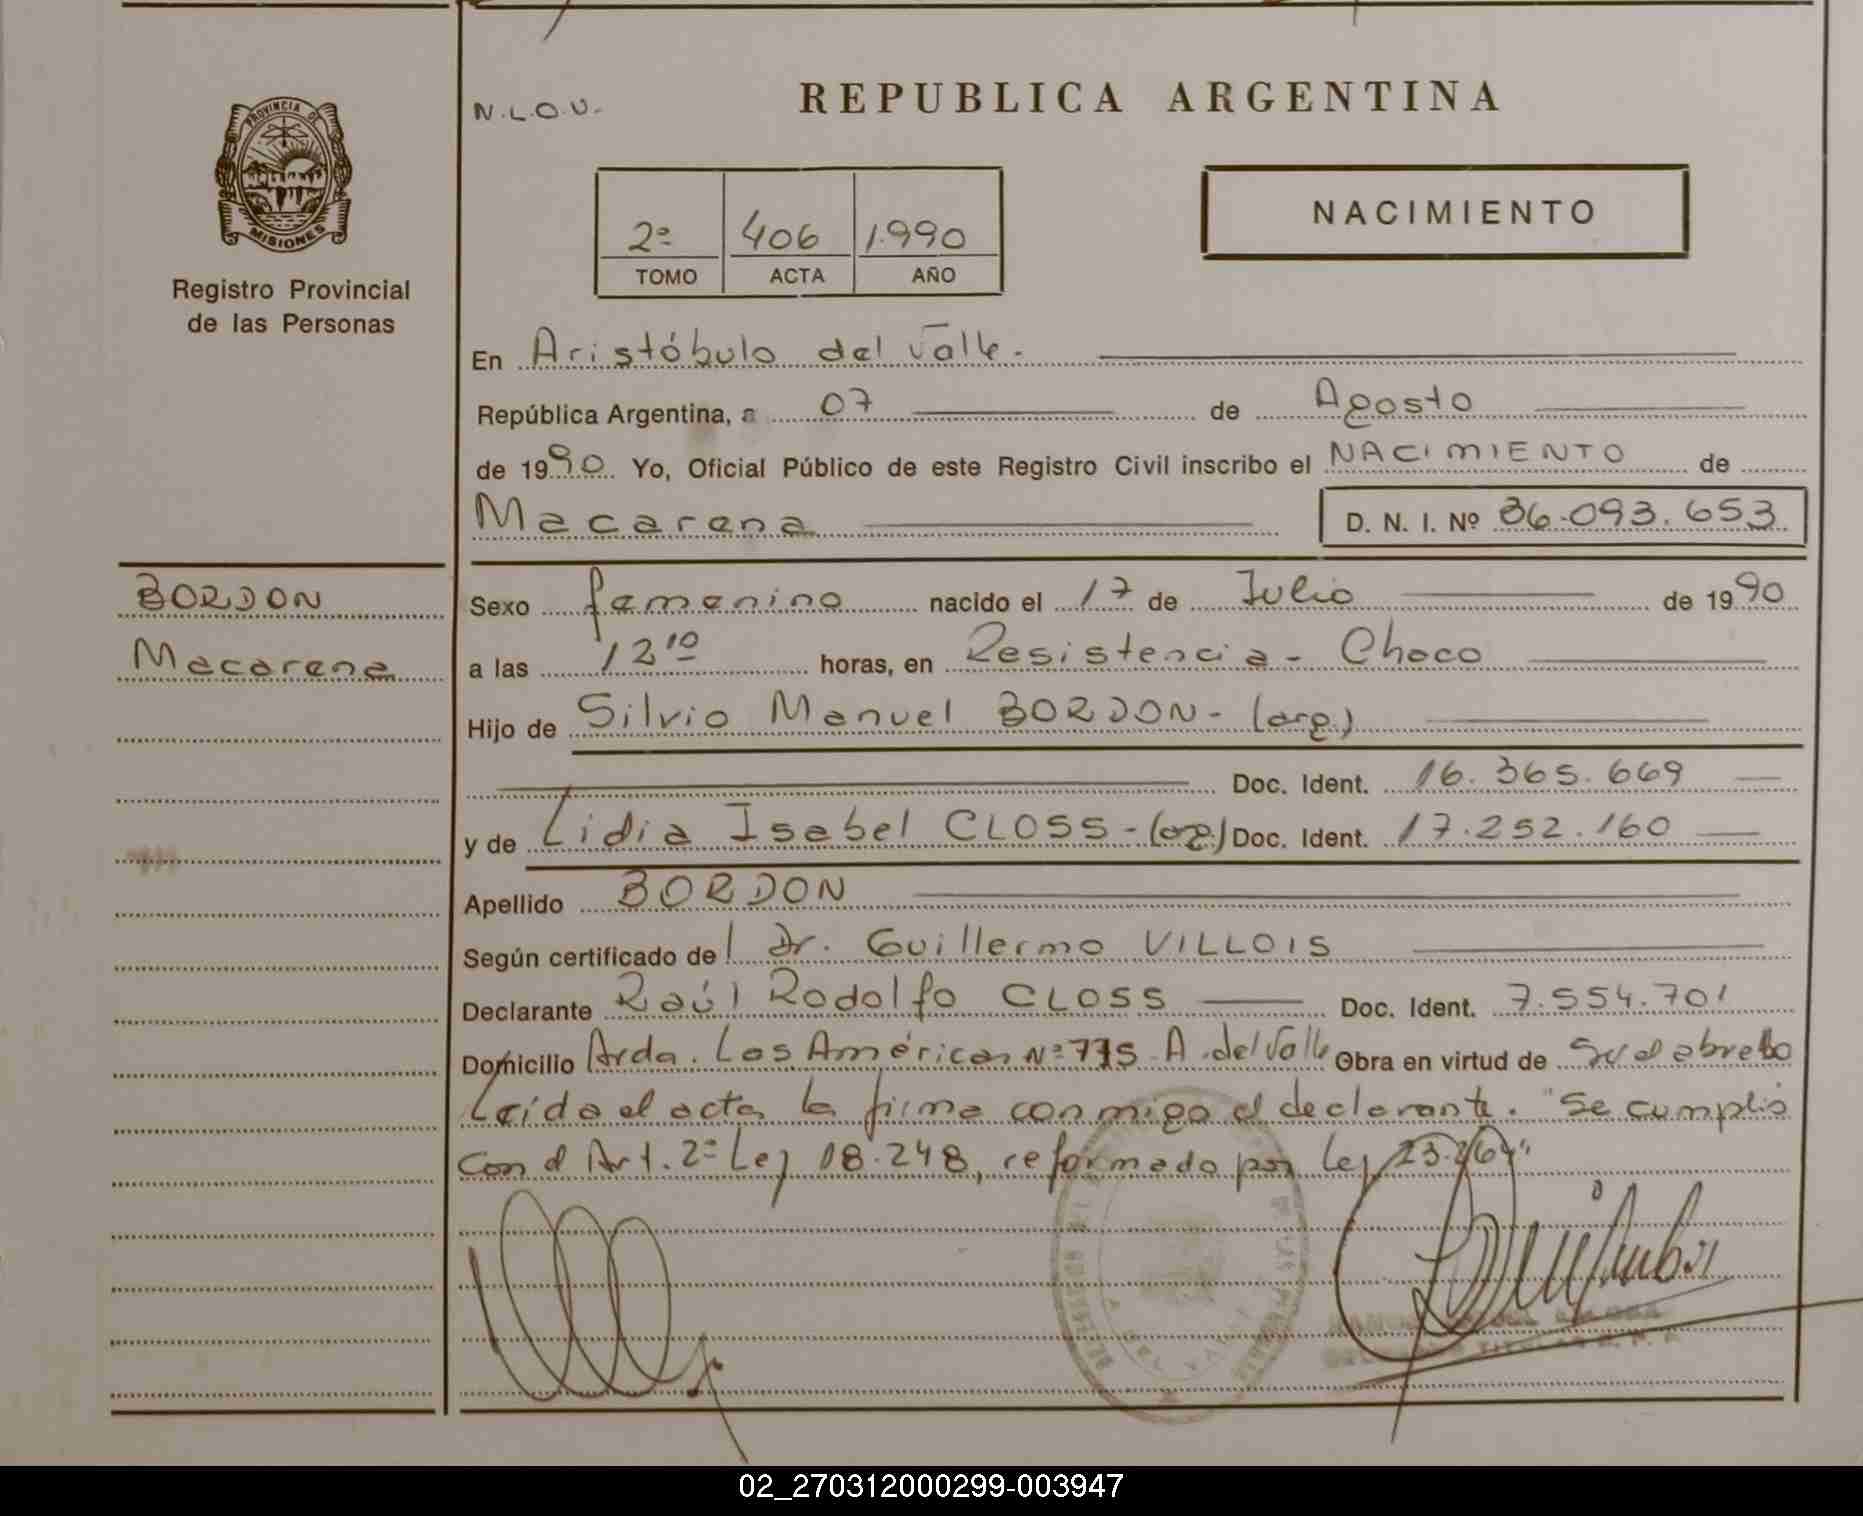 N.L.O.U.-
REPUBLICA ARGENTINA
PROVINCIA DE
MISIONES
Registro Provincial
de las Personas
2º 406 1.990
TOMO ACTA AÑO
NACIMIENTO
En Aristóbulo del Valle.
República Argentina, a 07 de Agosto
de 1990 Yo, Oficial Público de este Registro Civil inscribo el NACIMIENTO de
Macarena D. N. I. Nº 36.093.653
BORDON
Macarena
Sexo femenino nacido el 17 de Julio de 1990
a las 12 10 horas, en Resistencia - Chaco
Hijo de Silvio Manuel BORDON - (arg.)
Doc. Ident. 16.365.669
y de Lidia Isabel CLOSS - (arg.) Doc. Ident. 17.252.160
Apellido BORDON
Según certificado de Dr. Guillermo VILLOIS
Declarante Raúl Rodolfo CLOSS Doc. Ident. 7.554.701
Domicilio Avda. Las Américas Nº 775 A. del Valle Obra en virtud de
Leída el acta la firma conmigo el declarante. "Se cumplió
con el Art. 2º Ley 18.248, reformado por Ley 23.264"
02_270312000299-003947